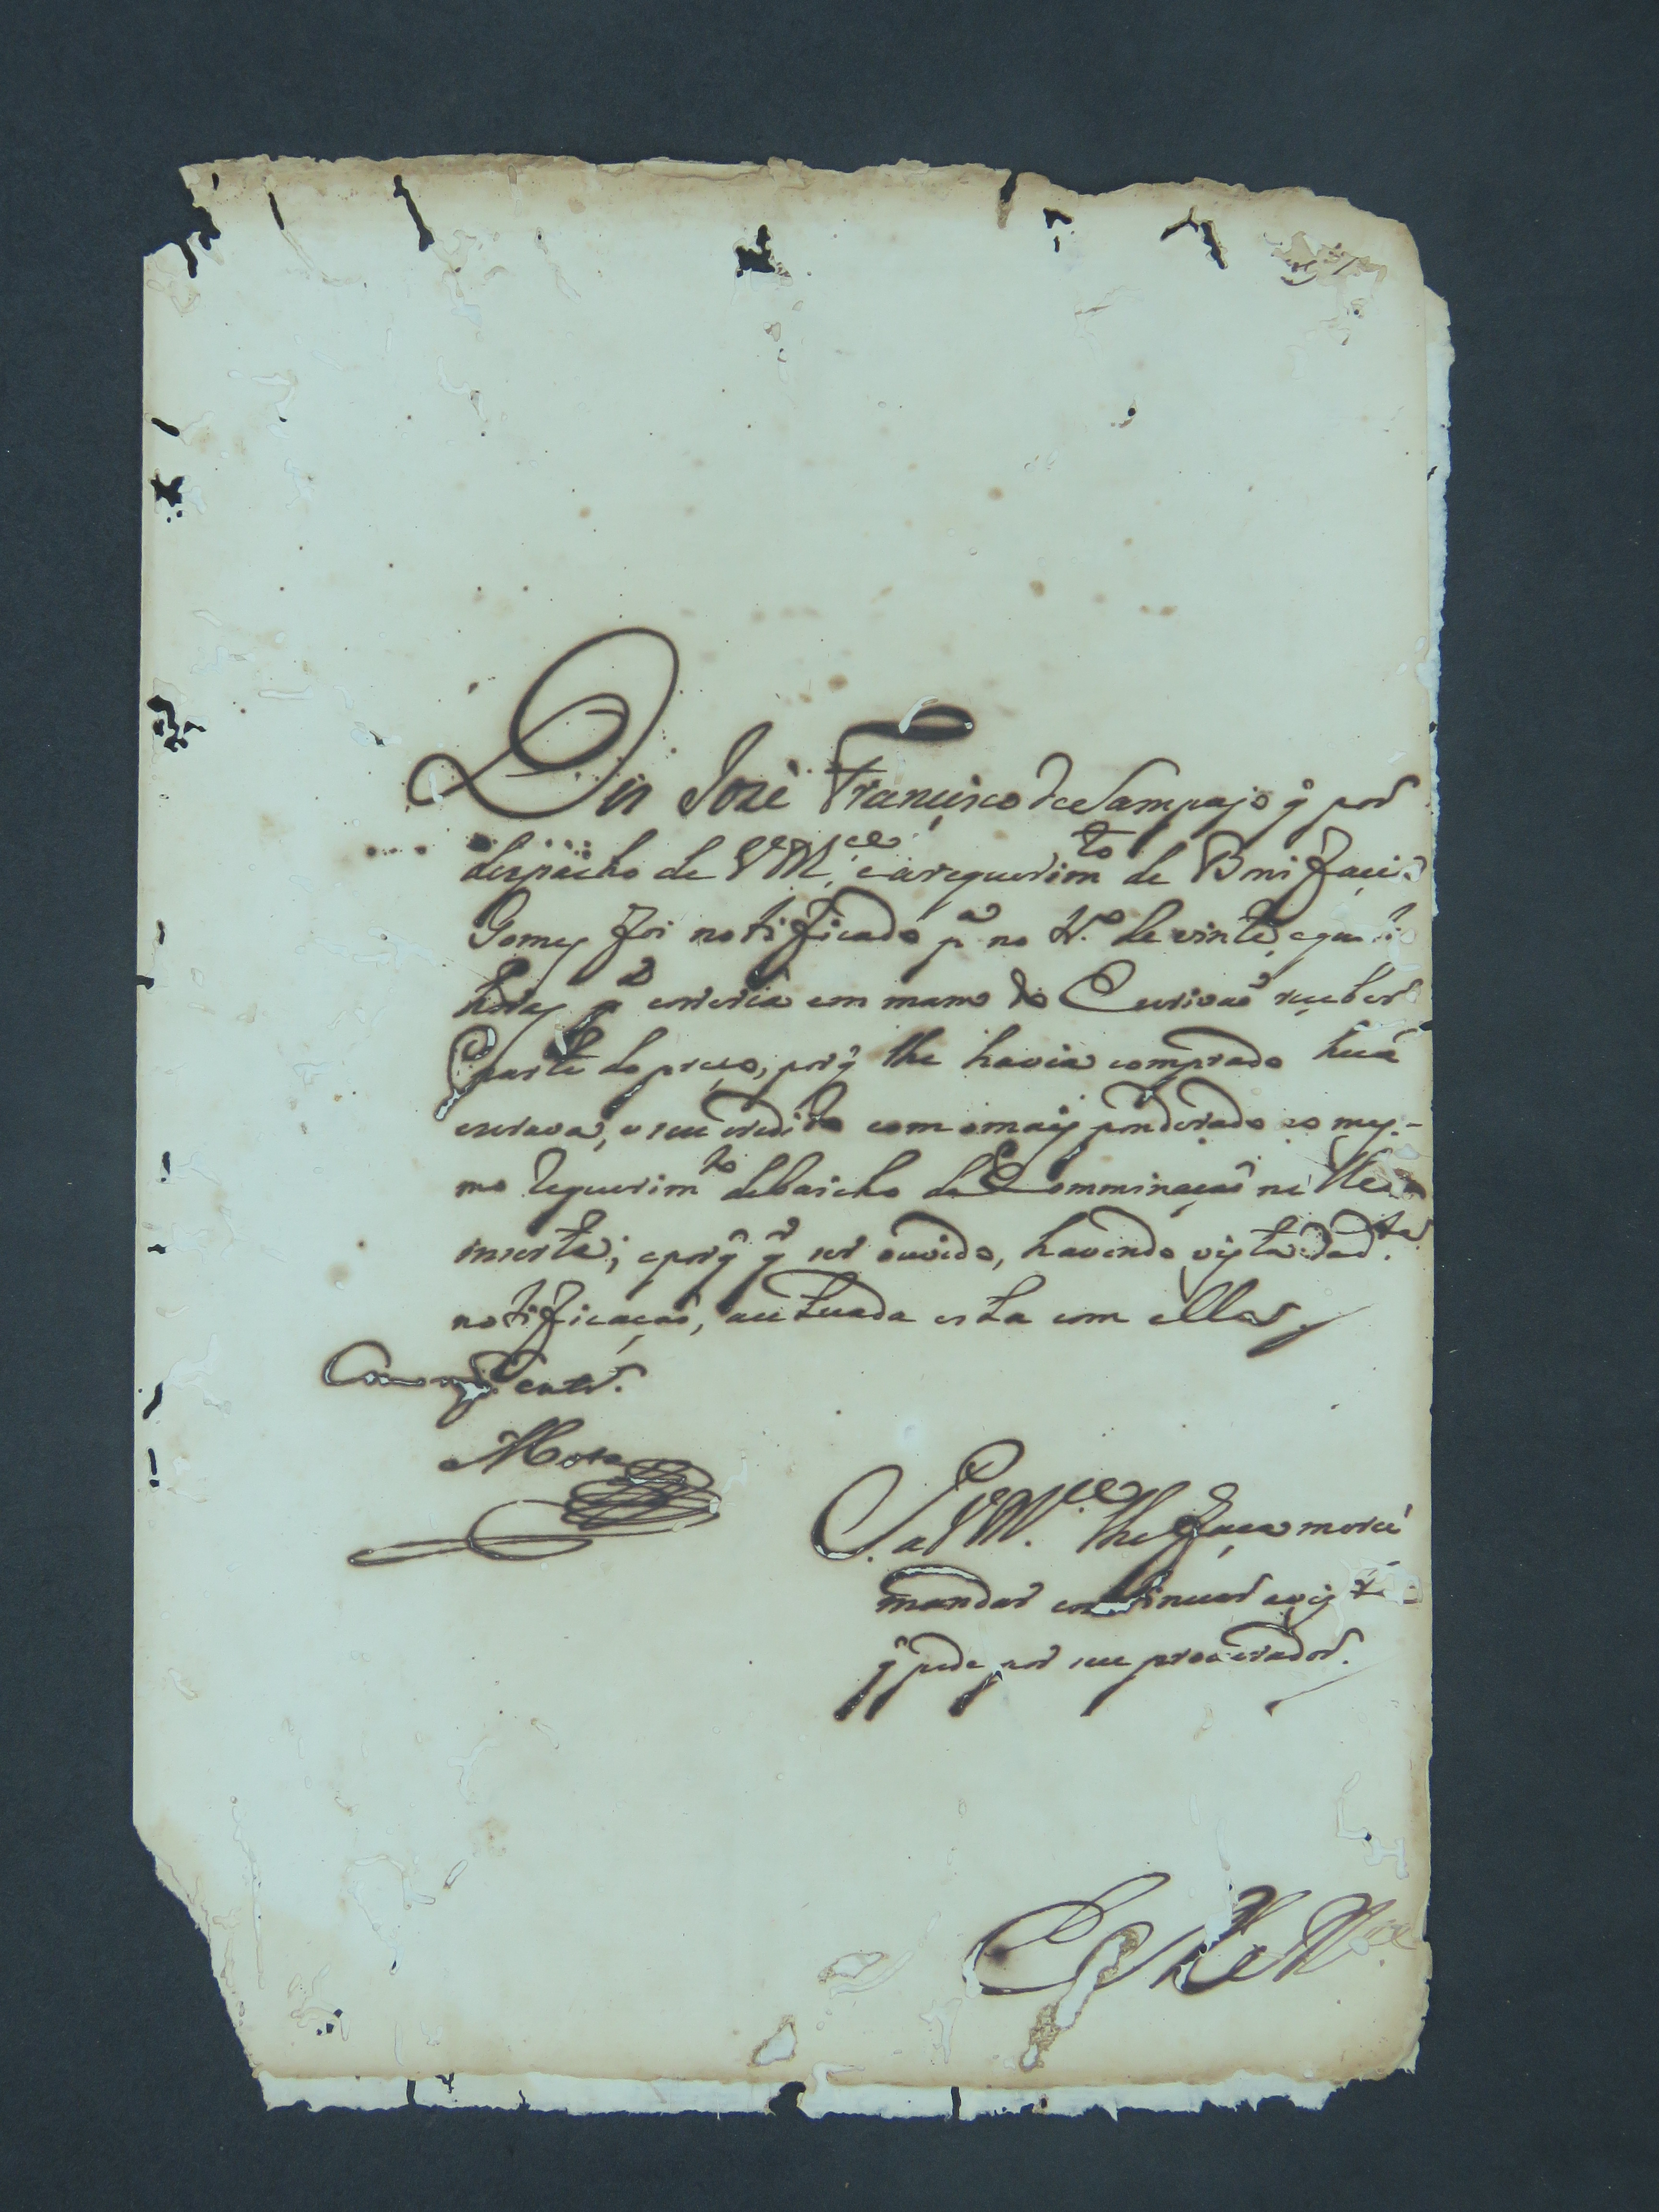 Diz Jozè Francisco de Sampajo q̃ por
despacho de VM.ce e a requerim.to de Bonifacio
Gomes foi notificado p.a no tr.o de vinte e quatro
horas em mam do Escrivaõ receber
parte do preço, porq̃ lhe havia comprado huã
escrava, e seu credito com o mais ponderado no mes-
mo requerim.to debaicho da Comminaçaõ nelle
inserta; e porq̃ q.r ser ouvido, havendo vista da d.ta
notificaçaõ, autuada esta com ella
Como entr.
Mota
P. a VM.ce lhe faça mercé
mandar continuar a vista
q̃ pede por seu procurador.
E R M.ce